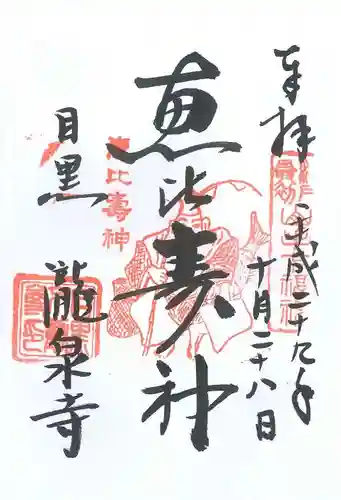 奉拝
平成二十九年
十月二十八日
恵比寿神
恵比壽神
目黒
瀧泉寺